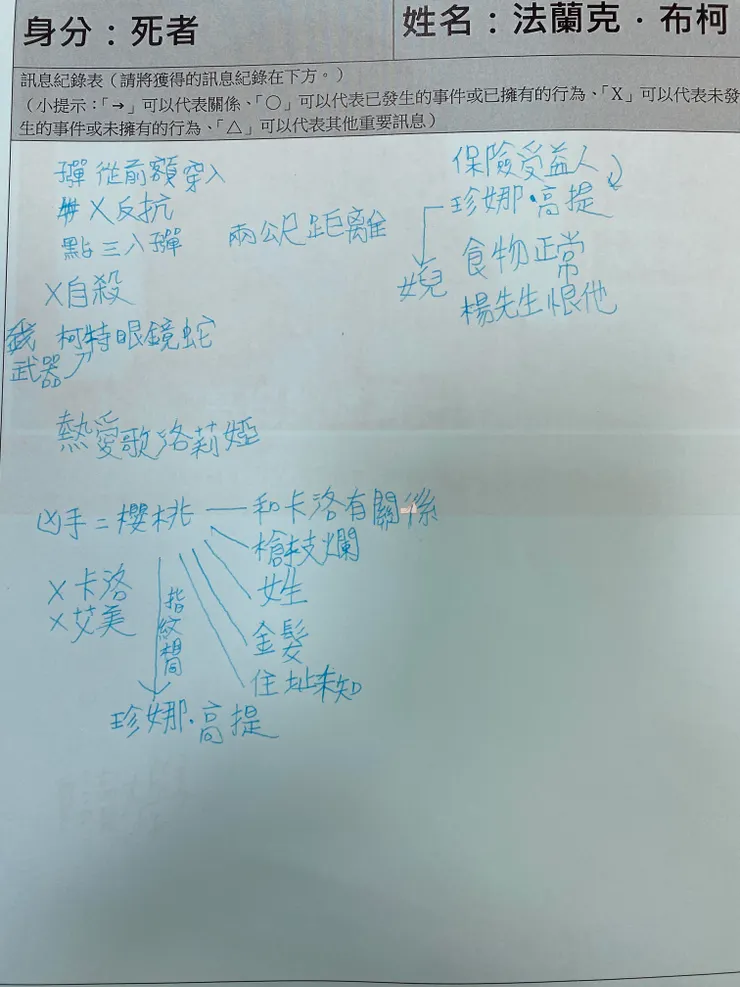 身分：死者
姓名：法蘭克．布柯
訊息紀錄表（請將獲得的訊息紀錄在下方。）
（小提示：「→」可以代表關係、「○」可以代表已發生的事件或已擁有的行為、「X」可以代表未發
生的事件或未擁有的行為、「△」可以代表其他重要訊息）
彈從前額穿入
X反抗
點三八彈
兩公尺距離
X自殺
柯特眼鏡蛇
武器
熱愛歌洛莉婭
保險受益人
珍娜·高提
女兒
食物正常
楊先生恨他
凶手=櫻桃
和卡洛有關係
槍枝爛
女生
金髮
住址未知
X卡洛
X艾美
指紋相同
珍娜·高提